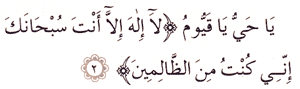 يَا حَيُّ يَا قَيُّومُ ﴿لَآ إِلٰهَ إِلاَّ أَنْتَ سُبْحَانَكَ
إِنّ۪ي كُنْتُ مِنَ الظَّالِمِينَ﴾ ٢